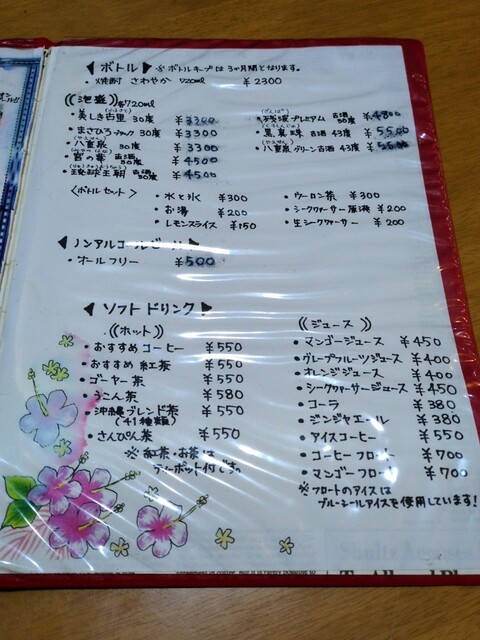 ボトル ※ボトルキープは3ヶ月間となります。
・焼酎 さわやか 720ml ¥2300
((泡盛)) 各720ml
・美しき古里 30度 ¥3300
・まさひろブラック 30度 ¥3300
・八重泉 30度 ¥3300
・宮の華 古酒 30度 ¥4500
・琉球王朝 古酒 30度 ¥4500
プレミアム 古酒 30度 ¥4800
・黒真珠 古酒 43度 ¥5500
・八重泉グリーン古酒 43度 ¥5500
<ボトルセット>
・水と氷 ¥300
・お湯 ¥200
・レモンスライス ¥150
・ウーロン茶 ¥300
・シークヮーサー原液 ¥200
・生シークヮーサー ¥200
ノンアルコールビール
・オールフリー ¥500
ソフトドリンク
((ホット))
・おすすめコーヒー ¥550
・おすすめ紅茶 ¥550
・ゴーヤー茶 ¥550
・うこん茶 ¥580
・沖縄ブレンド茶 ¥550
(41種類)
・さんぴん茶 ¥550
※紅茶・お茶は
ティーポット付です。
((ジュース))
・マンゴージュース ¥450
・グレープフルーツジュース ¥400
・オレンジジュース ¥400
・シークヮーサージュース ¥450
・コーラ ¥380
・ジンジャエール ¥380
・アイスコーヒー ¥550
・コーヒーフロート ¥700
・マンゴーフロート ¥700
※フロートのアイスは
ブルーシールアイスを使用しています!